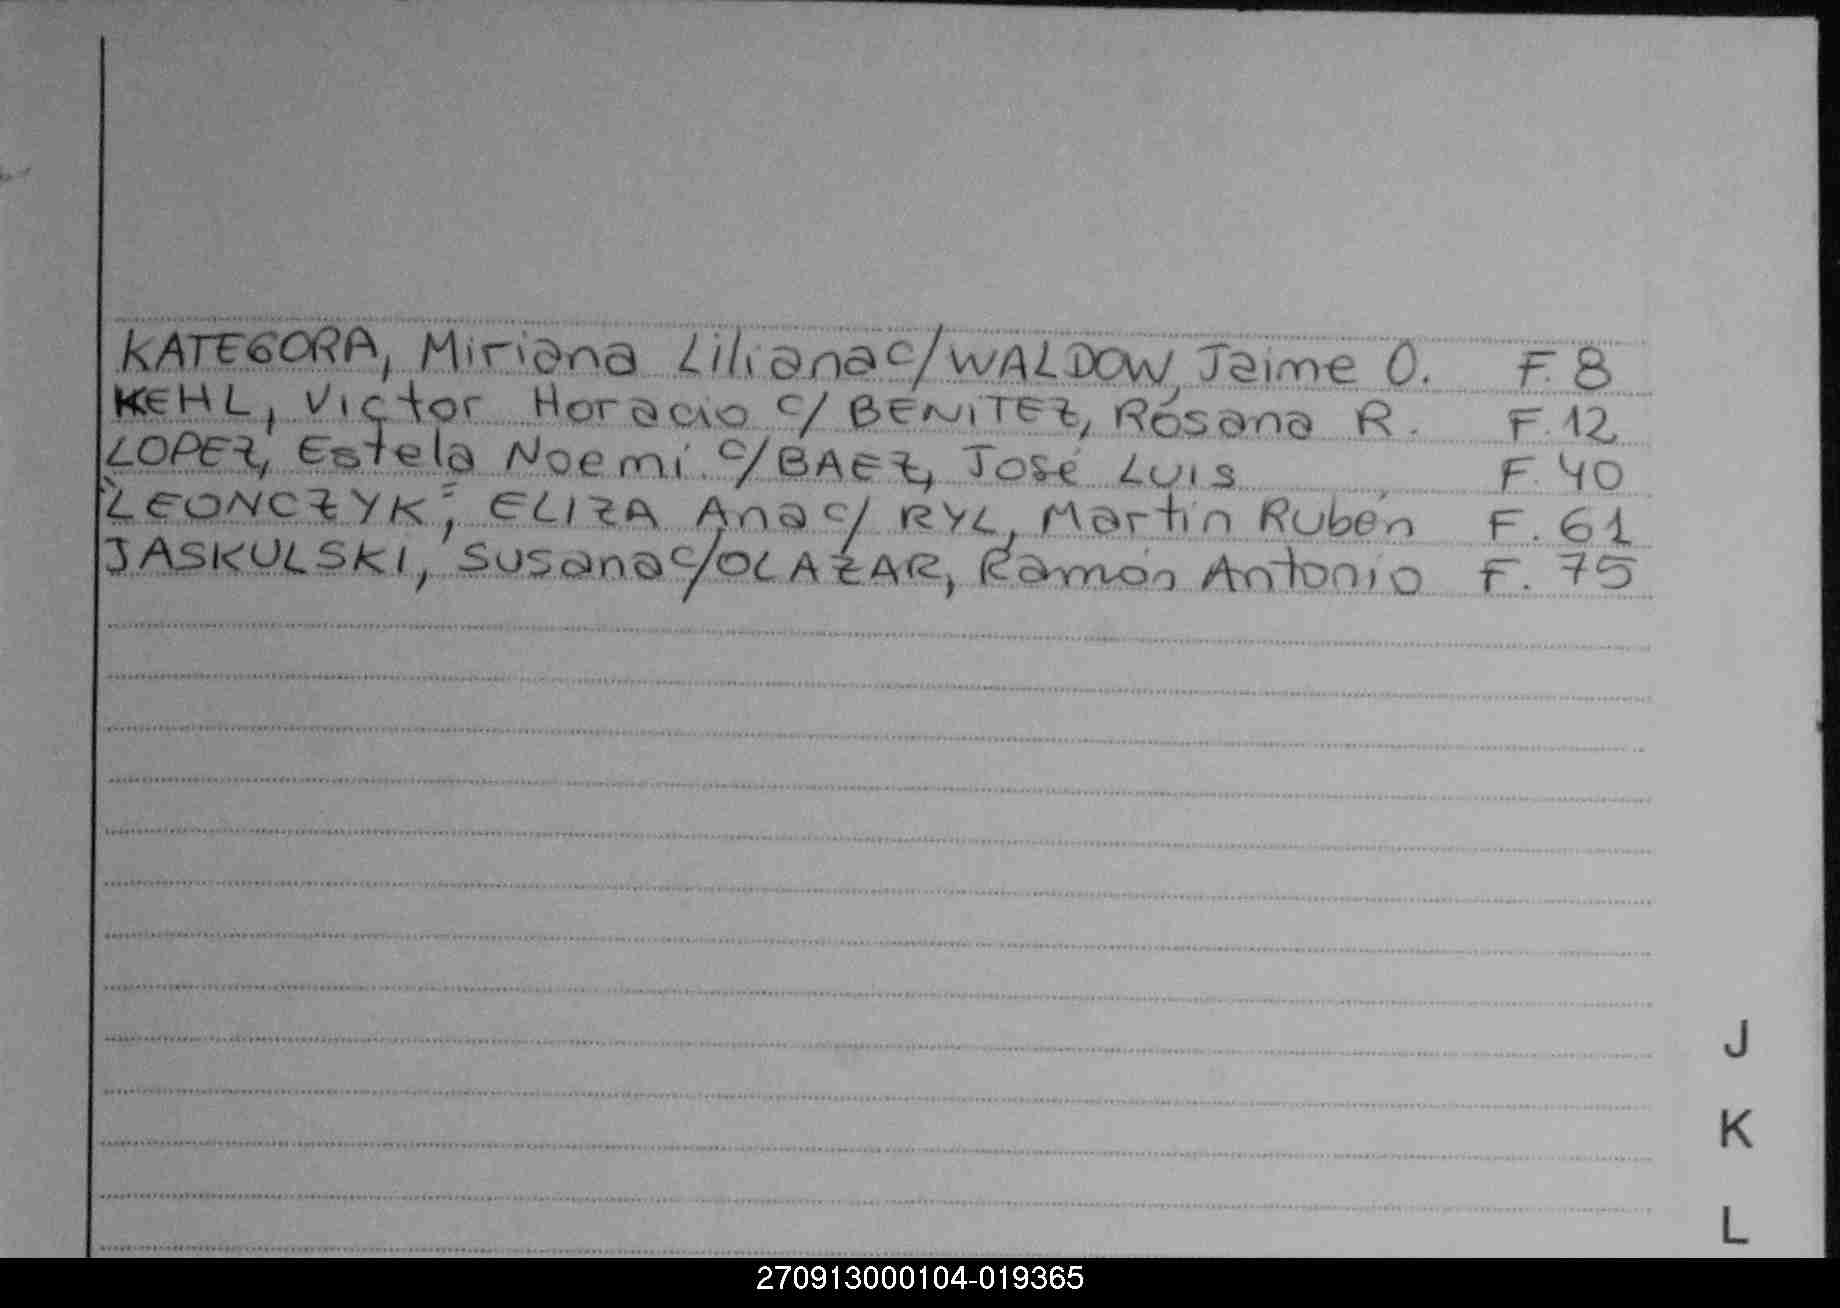 KATEGORA, Miriana Liliana c/ WALDOW, Jaime O. F. 8
KEHL, Victor Horacio c/ BENITEZ, Rosana R. F. 12
LOPEZ, Estela Noemí c/ BAEZ, José Luis F. 40
"LEONCZYK", ELIZA Ana c/ RYL, Martín Rubén F. 61
JASKULSKI, Susana c/ OLAZAR, Ramón Antonio F. 75
J
K
L
270913000104-019365